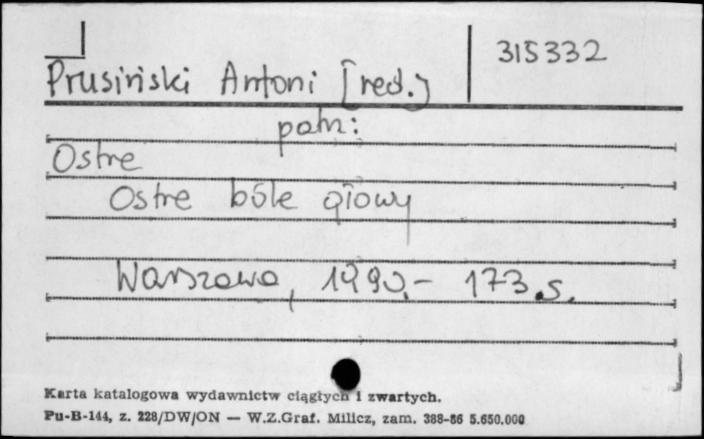 315332
Prusiński Antoni [red.]
patrz:
Ostre
Ostre bóle głowy
Warszawa, 1990.- 173.s.
Karta katalogowa wydawnictw ciągłych i zwartych.
Pu-B-144, z. 228/DW/ON — W.Z.Graf. Milicz, zam. 388-86 5.650.000